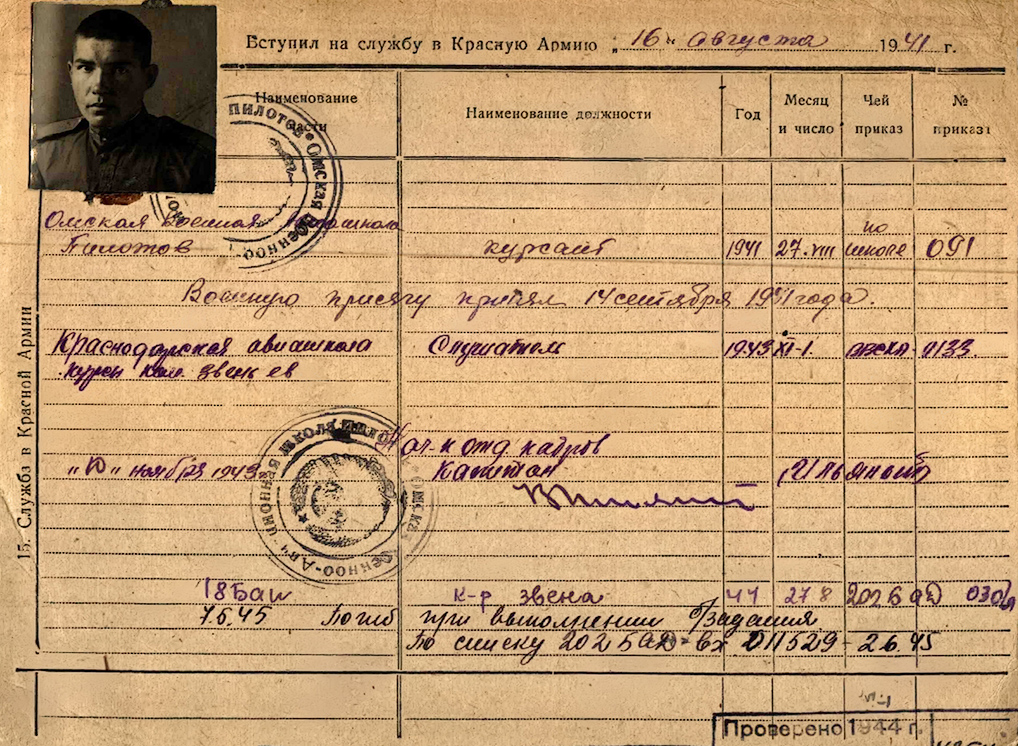 Вступил на службу в Красную Армию „16“ августа 1941 г.
Наименование части
Наименование должности
Год
Месяц и число
Чей приказ
№ приказа
15. Служба в Красной Армии
Омская военная
Пилотов курсант 1941 27.VIII по школе 091
Военную присягу принял 14 сентября 1941 года.
Краснодарская авиашкола Слушатель 1943 XI-1. 0133
курсы ком. звеньев
Нач-к отд кадров
"10" ноября 1943 Капитан
18 Бап к-р звена 44 27 8 202 бад
7.5.45 Погиб при выполнении б/задания
По списку 202 БАД - вх 011529 - 2.6.45
Проверено 1944 г.